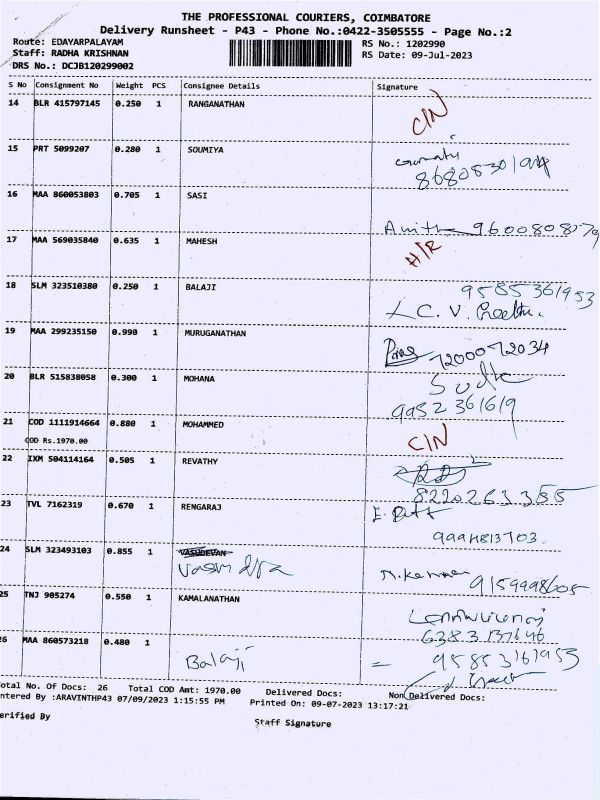 THE PROFESSIONAL COURIERS, COIMBATORE
Delivery Runsheet - P43 - Phone No.:0422-3505555 - Page No.:2
Route: EDAYARPALAYAM RS No.: 1202990
Staff: RADHA KRISHNAN RS Date: 09-Jul-2023
DRS No.: DCJB120299002
S No Consignment No Weight PCS Consignee Details Signature
14 BLR 415797145 0.250 1 RANGANATHAN CIN
15 PRT 5099207 0.280 1 SOUMIYA
16 MAA 860053803 0.705 1 SASI
Anitha 9600808079
17 MAA 569035840 0.635 1 MAHESH H/R
18 SLM 323510380 0.250 1 BALAJI 9585361953
C. V.
19 MAA 299235150 0.990 1 MURUGANATHAN
7200072034
20 BLR 515838058 0.300 1 MOHANA Sudha
9952361619
21 COD 1111914664 0.880 1 MOHAMMED CIN
COD Rs.1970.00
22 IXM 504114164 0.505 1 REVATHY
8220263355
23 TVL 7162319 0.670 1 RENGARAJ
24 SLM 323493103 0.855 1 VASUDEVAN
9159998605
25 TNJ 905274 0.550 1 KAMALANATHAN
6383137646
26 MAA 860573218 0.480 1
Balaji = 9585361953
Total No. Of Docs: 26 Total COD Amt: 1970.00 Delivered Docs: Non Delivered Docs:
ntered By :ARAVINTHP43 07/09/2023 1:15:55 PM Printed On: 09-07-2023 13:17:21
erified By Staff Signature